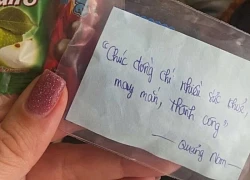 "Chúc đồng chí nhiều sức khoẻ,
may mắn, thành công"
— Quảng Nam —